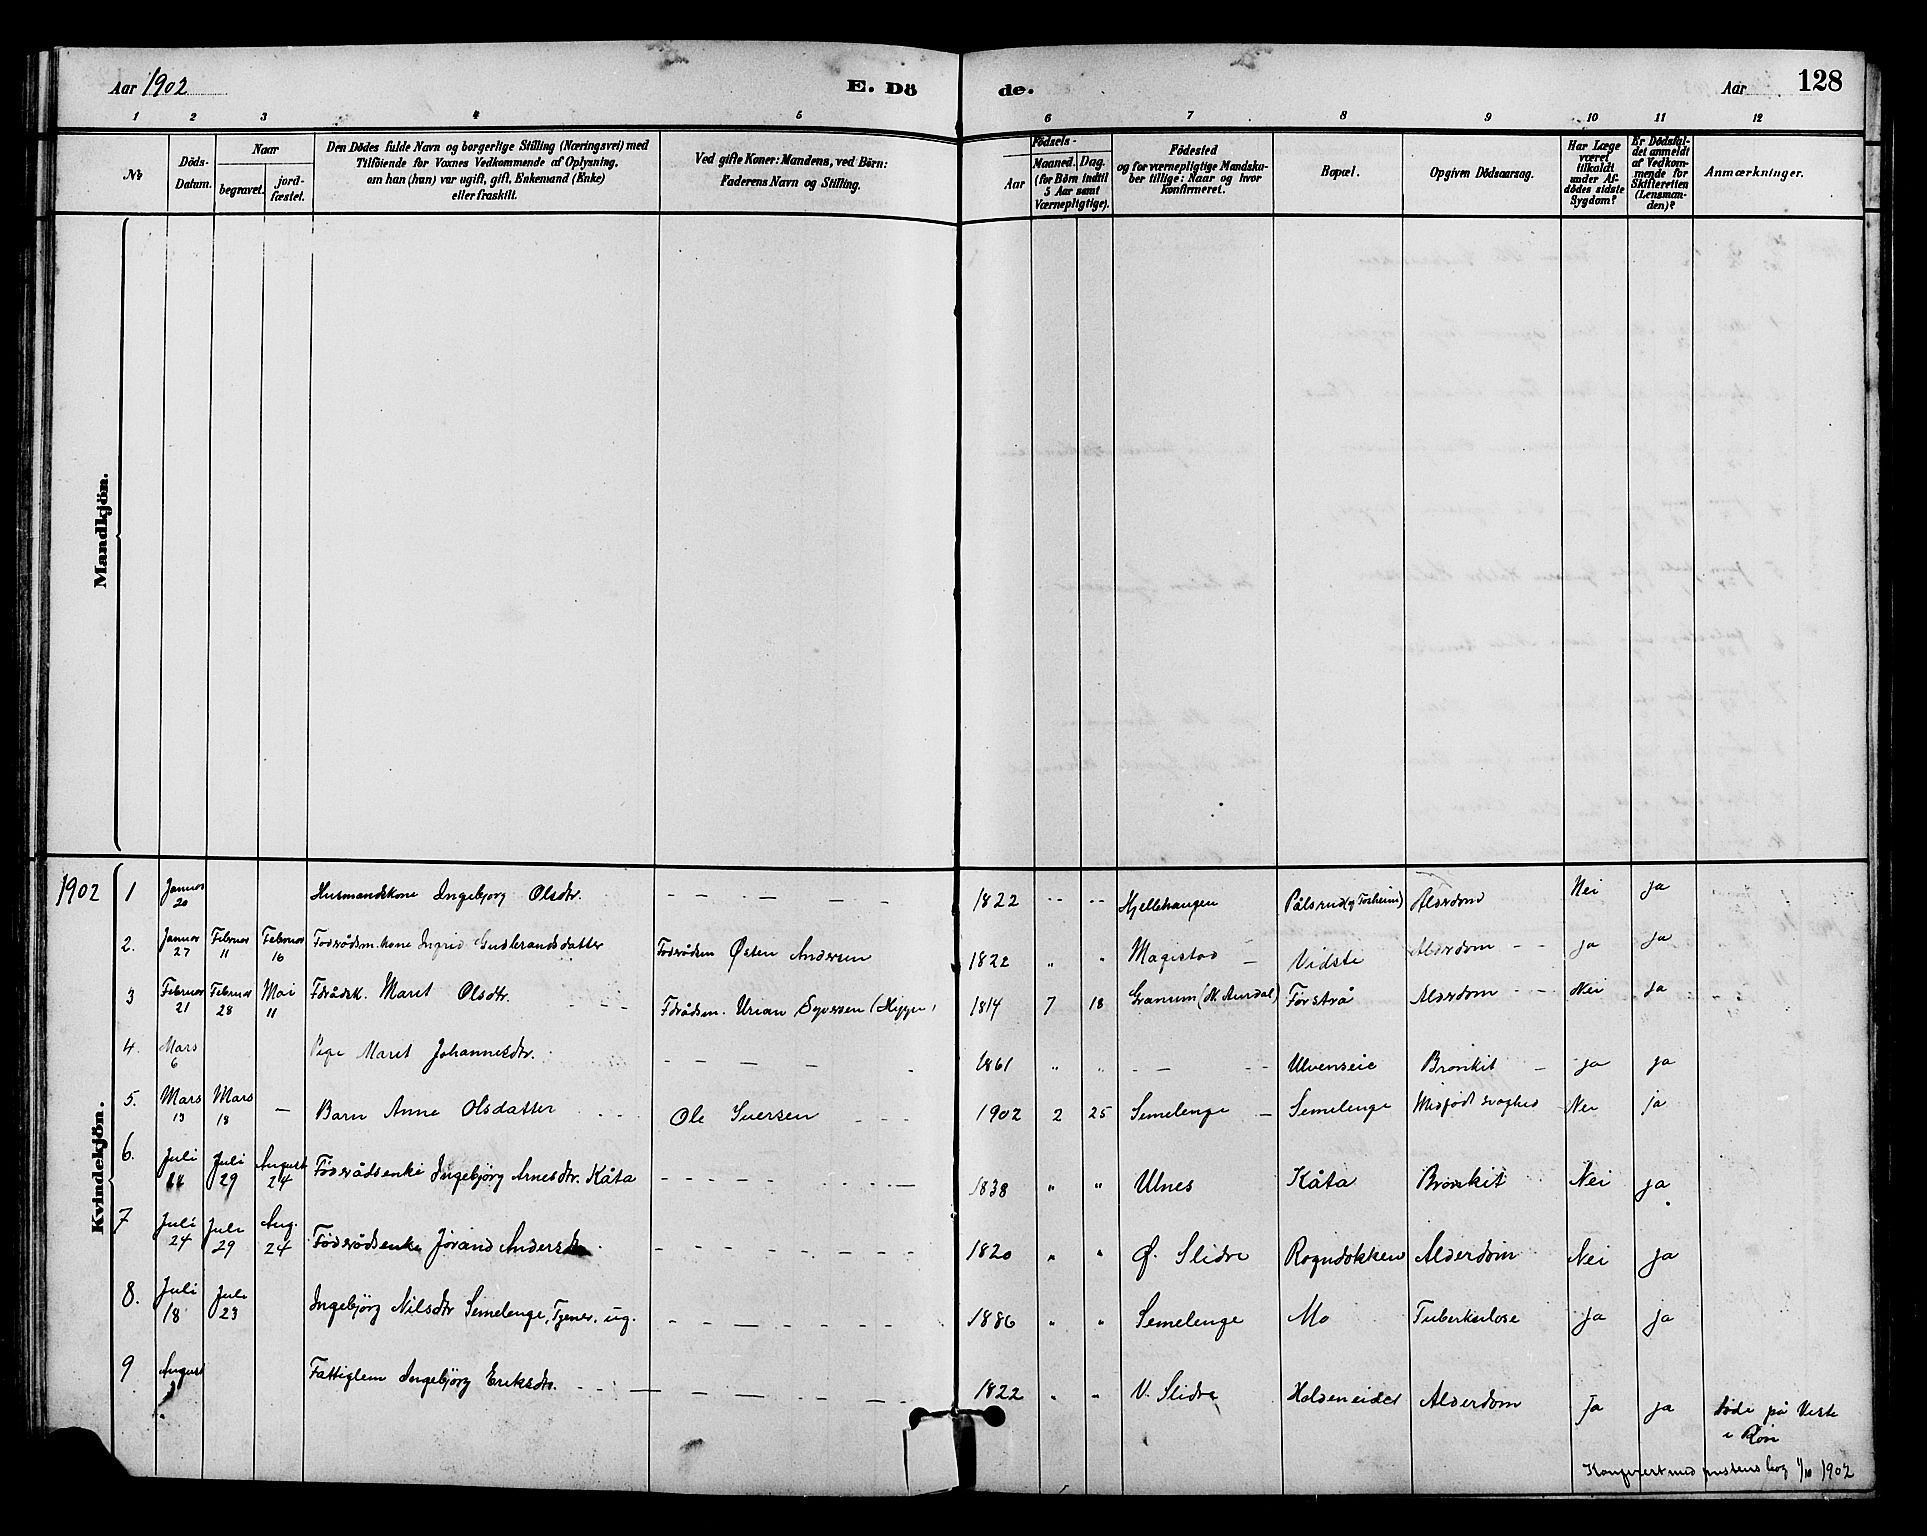 Aar 1902
E. Dö
de.
Aar
128
1 2 3 4 5 6 7 8 9 10 11 12
No
Döds-
Datum.
Naar
begravet.
jord-
fæstet.
Den Dödes fulde Navn og borgerlige Stilling (Næringsvei) med
Tilföiende for Voxnes Vedkommende af Oplysning,
om han (hun) var ugift, gift, Enkemand (Enke)
eller fraskilt.
Ved gifte Koner: Mandens, ved Börn:
Faderens Navn og Stilling.
Födsels-
Aar
Maaned. Dag.
(for Börn indtil
5 Aar samt
Værnepligtige).
Födested
og for værnepligtige Mandska-
ber tillige: Naar og hvor
konfirmeret.
Bopæl.
Opgiven Dödsaarsag.
Har Læge
været
tilkaldt
under Af-
dödes sidste
Sygdom?
Er Dödsfal-
det anmeldt
af Vedkom-
mende for
Skifteretten
(Lensman-
den)?
Anmærkninger.
Mandkjön.
Kvindekjön.
1902 1 Januar 20 Husmandskone Ingebjorg Olsdtr. - - - - - 1822 -- -- Hjellehaugen Pålsrud (g Tosheim) Alderdom Nei ja
2. Januar 27 Februar 11 Februar 16 Foderådsm.kone Ingrid Gudbrandsdatter Foderådsm Østen Andersen 1822 " " Magistad - Vidste Alderdom - - ja ja
3 Februar 21 Februar 28 Mai 11 Fdrådsk. Marit Olsdtr. - - - Fdrådsm. Urian Syversen (Hygge) 1814 7 18 Granum (N. Aurdal) Förstrå Alderdom - - Nei ja
4. Mars 6 Pige Marit Johannesdtr. - - - - - 1861 " " - - - - Ulvenseie Bronkit - ja ja
5. Mars 13 Mars 18 - Barn Anne Olsdatter - - - Ole Iversen - - - 1902 2 25 Semelenge - Semelenge Medfödt svaghed Nei ja
6. Juli Juli 29 August 24 Föderådsenke Ingebjörg Arnesdtr. Kåta - - - - - - - - 1838 " " Ulnes Kåta Bronkit Nei ja
7 Juli 24 Juli 29 Aug. 24 Föderådsenke Jörand Andersdtr. - - - - - - - - 1820 " " Ø. Slidre Rogndokken Alderdom Nei ja
8. Juli 18 Juli 23 Ingebjörg Nilsdtr Semelenge, Tjener, ug. - - - - - - - 1886 " " Semelenge Mo Tuberkulose ja ja
9 August Fattiglem Ingebjörg Eriksdtr. - - - - - - - - 1822 " " V. Slidre Holdeneidet Alderdom Ja ja döde på Viste
i Rön
Konferert med prestens bog 1/10 1902